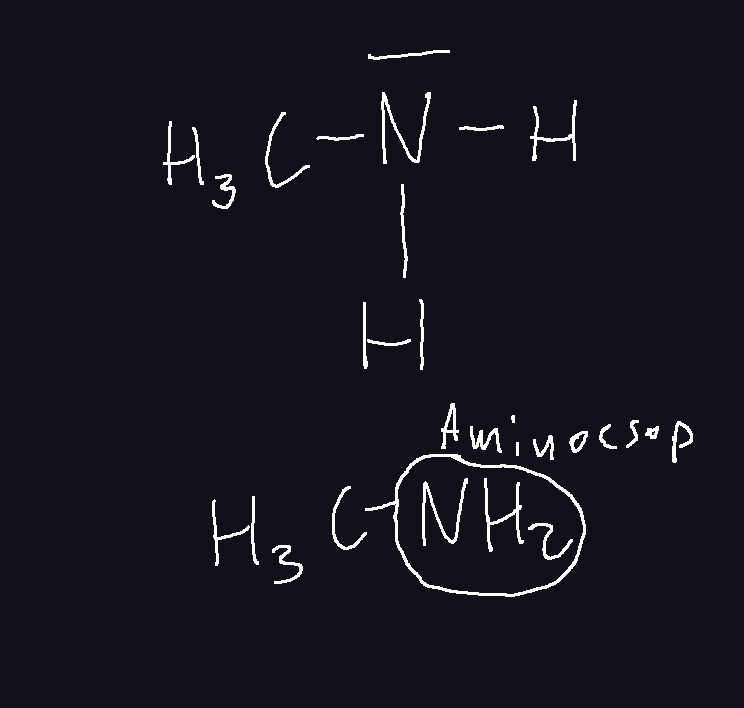 H₃C-N-H
H
Aminocsop
H₃C-NH₂